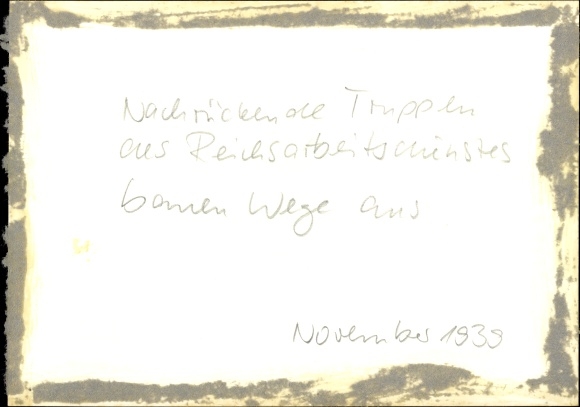 Nachrückende Truppen
des Reichsarbeitsdienstes
bauen Wege aus
November 1939